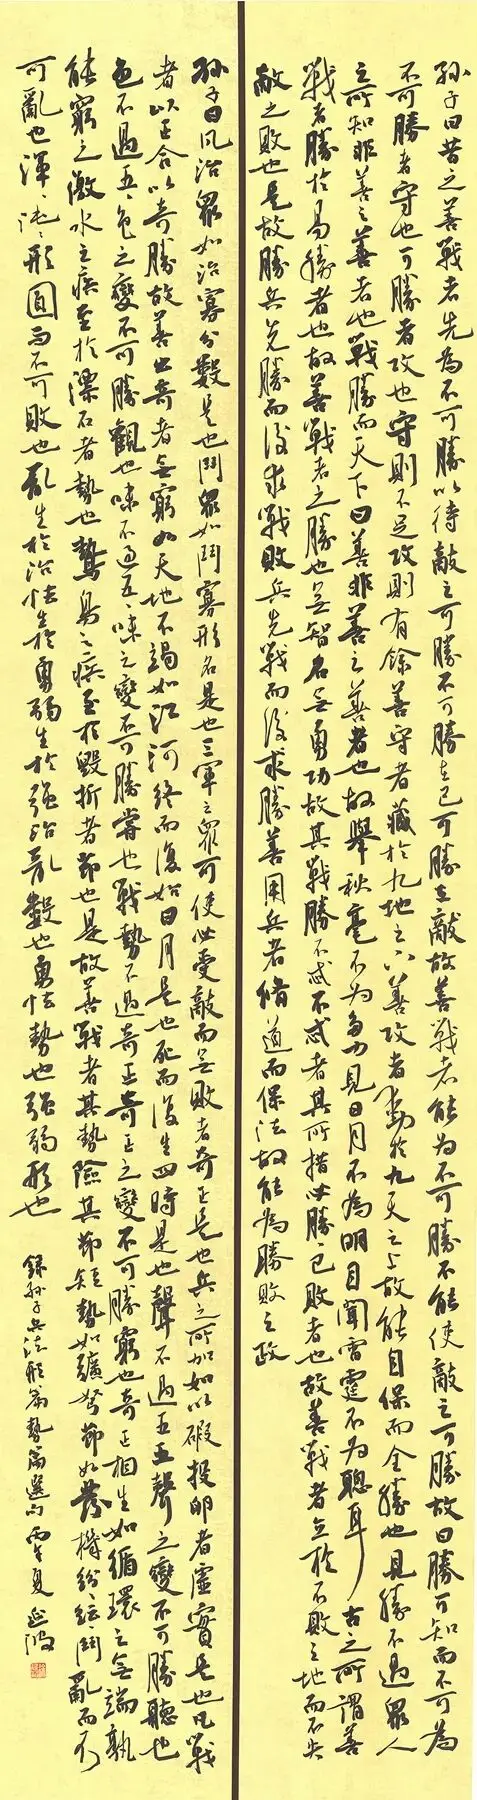 孫子曰昔之善戰者先為不可勝以待敵之可勝不可勝在己可勝在敵故善戰者能為不可勝不能使敵之可勝故曰勝可知而不可為
不可勝者守也可勝者攻也守則不足攻則有餘善守者藏於九地之下善攻者動於九天之上故能自保而全勝也見勝不過眾人
之所知非善之善者也戰勝而天下曰善非善之善者也故舉秋毫不為多力見日月不為明目聞雷霆不為聰耳古之所謂善
戰者勝於易勝者也故善戰者之勝也無智名無勇功故其戰勝不忒不忒者其所措必勝勝已敗者也故善戰者立於不敗之地而不失
敵之敗也是故勝兵先勝而後求戰敗兵先戰而後求勝善用兵者修道而保法故能為勝敗之政
孫子曰凡治眾如治寡分數是也鬥眾如鬥寡形名是也三軍之眾可使必受敵而無敗者奇正是也兵之所加如以碬投卵者虛實是也凡戰
者以正合以奇勝故善出奇者無窮如天地不竭如江河終而復始日月是也死而復生四時是也聲不過五五聲之變不可勝聽也
色不過五五色之變不可勝觀也味不過五五味之變不可勝嘗也戰勢不過奇正奇正之變不可勝窮也奇正相生如循環之無端孰
能窮之激水之疾至於漂石者勢也鷙鳥之疾至於毀折者節也是故善戰者其勢險其節短勢如彍弩節如發機紛紛紜紜鬥亂而不
可亂也渾渾沌沌形圓而不可敗也亂生於治怯生於勇弱生於強治亂數也勇怯勢也強弱形也
錄孫子兵法形篇勢篇選句 夏